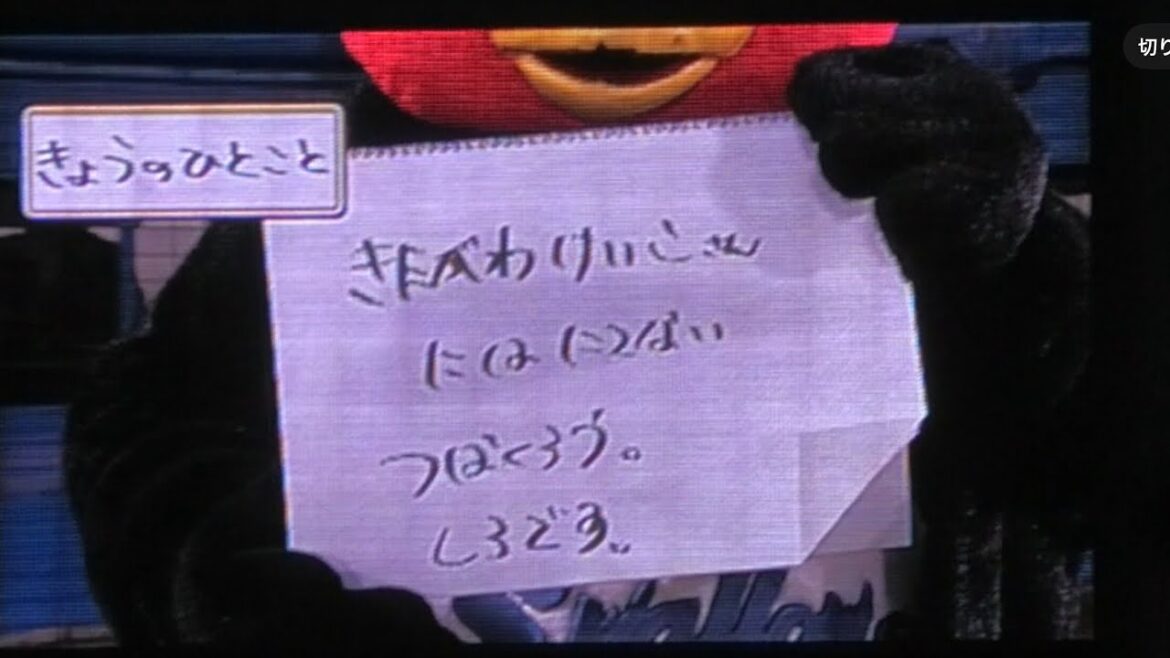 きょうのひとこと
きたべわけいこさん
にはにつばい
つばくろう。
しろです。
切り